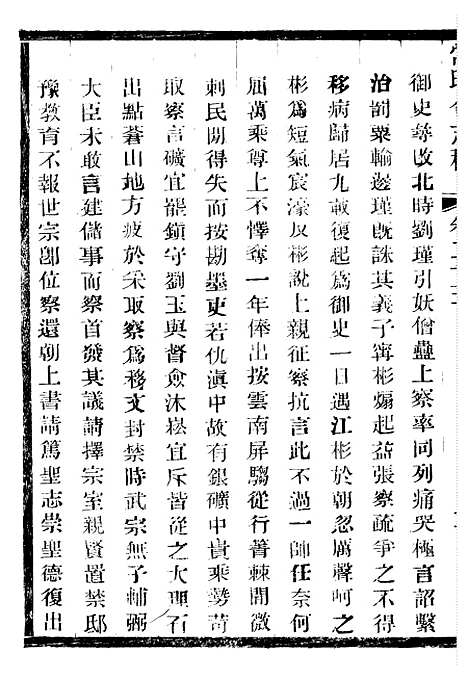 御史辱改北時劉瑾引妖僧蠱上察率同列痛哭極言詔繫
治罰粟輸邊瑾旣誅其義子寗彬煽起益張察疏爭之不得
移病歸居九載復起爲御史一日遇江彬於朝忽厲聲呵之
彬爲短氣宸濠反彬說上親征察抗言此不過一帥任奈何
屈萬乘尊上不懌奪一年俸出按雲南屏騶從行菁棘間微
刺民閒得失而按勘墨吏若仇滇中故有銀礦中貴乘勢苛
取察言礦宜罷鎭守劉玉與督僉沐崧宜斥皆從之大理石
出點蒼山地方疲於采取察爲移文封禁時武宗無子輔弼
大臣未敢言建儲事而察首發其議請擇宗室親賢置禁邸
豫敎育不報世宗卽位察還朝上書請篤聖志崇聖德復出